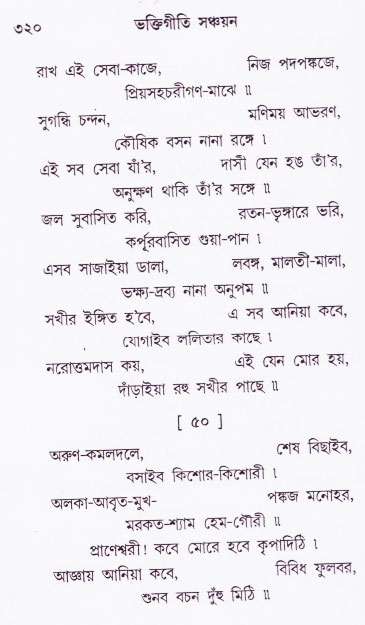 ৩২০ ভক্তিগীতি সঞ্চয়ন
রাখ এই সেবা-কাজে, নিজ পদপঙ্কজে,
প্রিয়সহচরীগণ-মাঝে ॥
সুগন্ধি চন্দন, মণিময় আভরণ,
কৌষিক বসন নানা রঙ্গে ।
এই সব সেবা যাঁ'র, দাসী যেন হঙ তাঁ'র,
অনুক্ষণ থাকি তাঁ'র সঙ্গে ॥
জল সুবাসিত করি, রতন-ভৃঙ্গারে ভরি,
কর্পূরবাসিত গুয়া-পান ।
এসব সাজাইয়া ডালা, লবঙ্গ, মালতী-মালা,
ভক্ষ্য-দ্রব্য নানা অনুপম ॥
সখীর ইঙ্গিত হ'বে, এ সব আনিয়া কবে,
যোগাইব ললিতার কাছে ।
নরোত্তমদাস কয়, এই যেন মোর হয়,
দাঁড়াইয়া রহু সখীর পাছে ॥
[ ৫০ ]
অরুণ-কমলদলে, শেষ বিছাইব,
বসাইব কিশোর-কিশোরী ।
অলকা-আবৃত-মুখ- পঙ্কজ মনোহর,
মরকত-শ্যাম হেম-গৌরী ॥
প্রাণেশ্বরী! কবে মোরে হবে কৃপাদিঠি ।
আজ্ঞায় আনিয়া কবে, বিবিধ ফুলবর,
শুনব বচন দুঁহু মিঠি ॥